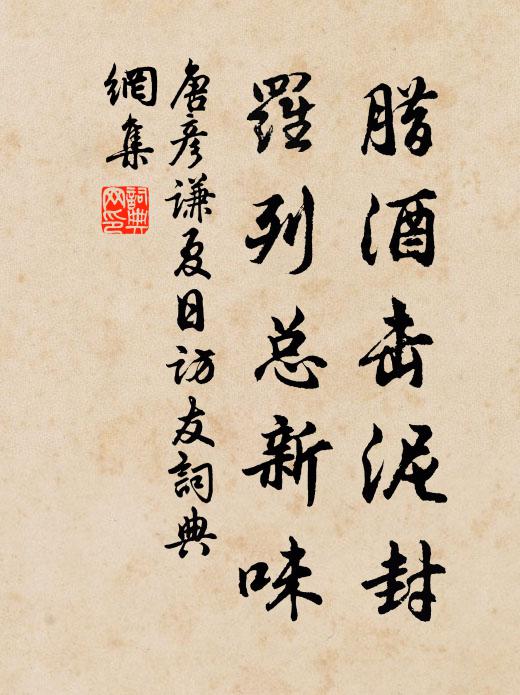 腊酒击泥封
羅列总新味
唐彦谦夏日访友詞典
網集
詞典网印